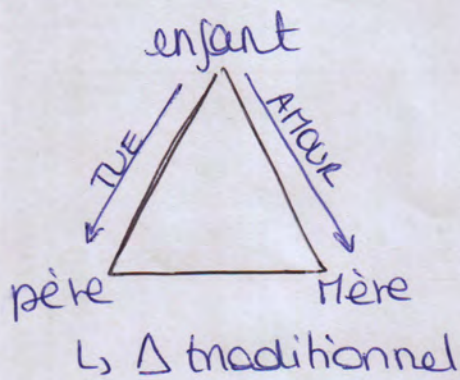 enfant
TUE AMOUR
père Mère
↳ Δ traditionnel